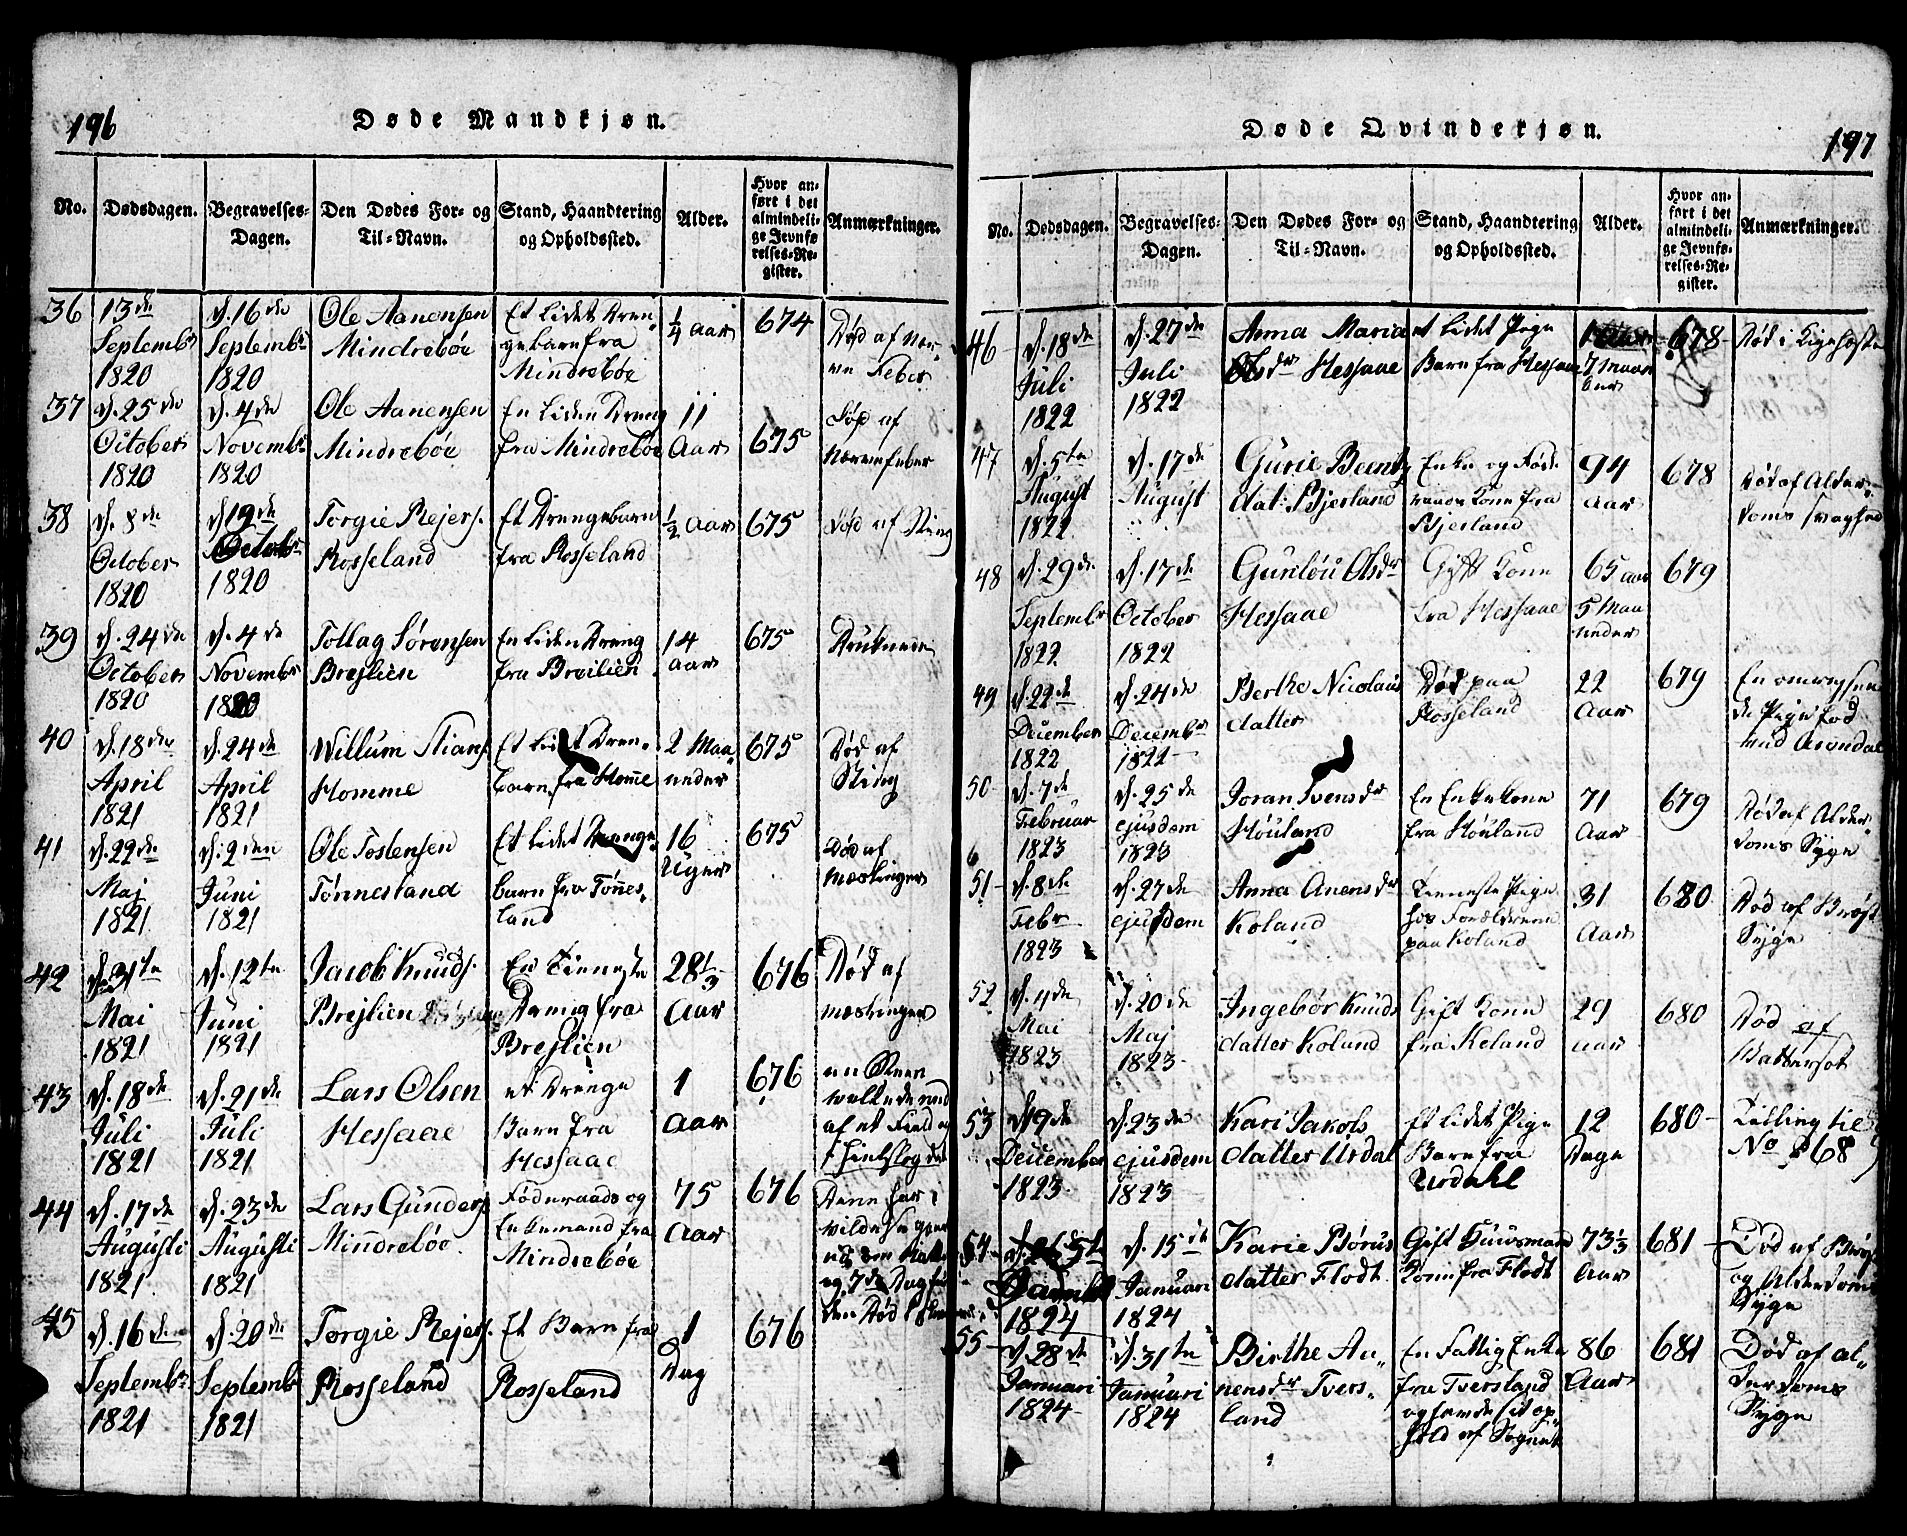 196
Døde Mandkjøn.
No. Dødsdagen. Begravelses-Dagen. Den Dødes For- og Til-Navn. Stand, Haandtering og Opholdssted. Alder. Hvor anført i det almindelige Jevnførelses-Register. Anmærkninger.
36 13de Septembr 1820 d. 16de Septembr 1820 Ole Aanensen Mindrebøe Et lidet Drengebarn fra Mindrebøe 1/4 Aar 674 Død af Nerve Feber
37 d. 25de October 1820 d. 4de Novembr 1820 Ole Aanensen Mindrebøe En liden Dreng fra Mindrebøe 11 Aar 675 Død af Nervefeber
38 d. 8de October 1820 d. 19de Octobr 1820 Torgie Rejers. Rosseland Et Drengebarn fra Rosseland 1/2 Aar 675 Død af Sting
39 d. 24de October 1820 d. 4de November 1820 Tollag Sørensen Brejlien En liden Dreng fra Breilien 14 Aar 675 Druknede
40 d. 18de April 1821 d. 24de April 1821 Willum Stians. Homme Et lidet Drengebarn fra Homme 2 Maaneder 675 Død af Sting
41 d. 22de Maj 1821 d. 2den Juni 1821 Ole Tostensen Tønnesland Et lidet Drengebarn fra Tønnesland 16 Uger 675 Død af Mæslinger
42 d. 31te Mai 1821 d. 12te Juni 1821 Jacob Knuds. Brejlien En Tieneste Dreng fra Brejlien 28 1/3 Aar 676 Død af Mæslinger
43 d. 18de Juli 1821 d. 21de Juli 1821 Lars Olsen Hessaae et Drenge Barn fra Hessaae 1 Aar 676 en Steen weltede ned af et Field og ihielslog det
44 d. 17de Augusti 1821 d. 23de Augusti 1821 Lars Gunders. Mindrebøe Føderaads og Enkemand fra Mindrebøe 75 Aar 676
45 d. 16de Septembr 1821 d. 20de Septembr 1821 Torgie Rejers. Rosseland Et Barn fra Rosseland 1 Dag 676
197
Døde Qvindekjøn.
No. Dødsdagen. Begravelses-Dagen. Den Dødes For- og Til-Navn. Stand, Haandtering og Opholdssted. Alder. Hvor anført i det almindelige Jevnførelses-Register. Anmærkninger.
46 d. 18de Juli 1822 d. 27de Juli 1822 Anna Maria Olsdr Hessaae et lidet Pige Barn fra Hessaae 7 Maaneder 678 Død i Kighoste
47 d. 5te August 1822 d. 17de August Gurie Beentsdat: Bjerland Enke og Føderaads Kone fra Bjerland 94 Aar 678 Død af Alderdoms svaghed
48 d. 29de Septembr 1822 d. 17de October 1822 Gunløu Olsdr Hessaae Gift Kone fra Hessaae 65 Aar 5 Maaneder 679
49 d. 22de December 1822 d. 24de Decembr 1822 Berthe Nicolausdatter Død paa Rosseland 22 Aar 679 En omrejsende Pige fød ved Arendal
50 d. 7de Februar 1823 d. 25de ejusdem 1823 Joran Ivensdr Høuland En Enkekone fra Høuland 71 Aar 679 Død af Alderdoms Syge
51 d. 8de Febr 1823 d. 27de ejusdem Anna Anensdr Koland Tieneste Pige hos Forældrene paa Koland 31 Aar 680 Død af Brøst Syge
52 d. 4de Mai 1823 d. 20de Maj 1823 Ingebør Knudsdatter Koland Gift Kone fra Koland 29 Aar 680 Død af Vattersot
53 d. 9de December 1823 d. 23de ejusdem 1823 Kari Jakobsdatter Urdal Et lidet Pige Barn fra Urdahl 12 Dage 680 Tvilling til No 68
54 1824 d. 15de Januari 1824 Karie Børusdatter Flodt Gift Huusmand Kone fra Flodt 73 1/3 Aar 681 Død af Brøst og Alderdoms Syge
55 d. 28de Januari 1824 d. 31te Januari 1824 Birthe Anensdr Tversland En Fattig Enke fra Tversland og havde sit ophold af Sognet 86 Aar 681 Død af alderdoms Syge